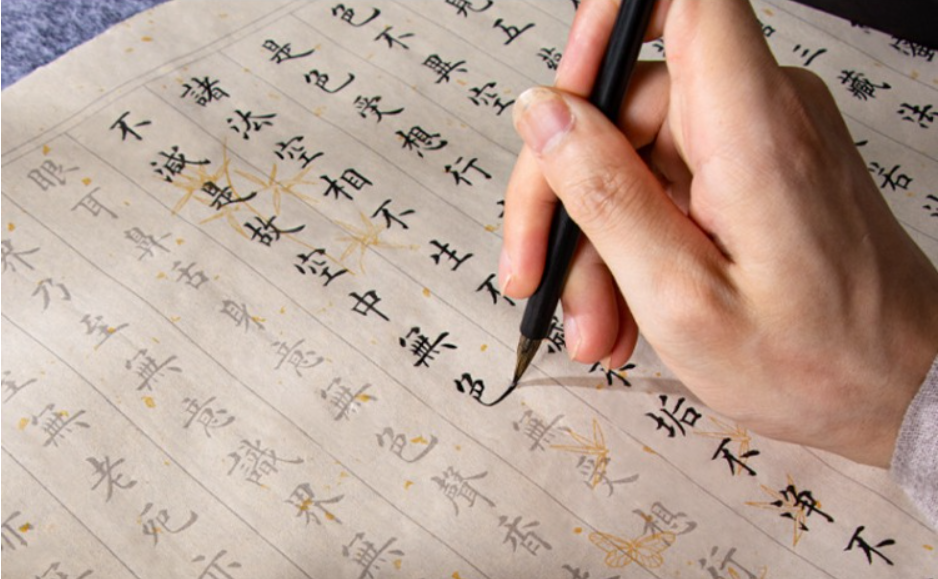 三藏法
若
見五蘊
色不異空
是色受想行
諸法空相不生不不垢不淨不
不減是故空中無色無受想行
眼耳鼻舌身意無色聲香
界乃至無意識界無
至無老死亦
亦